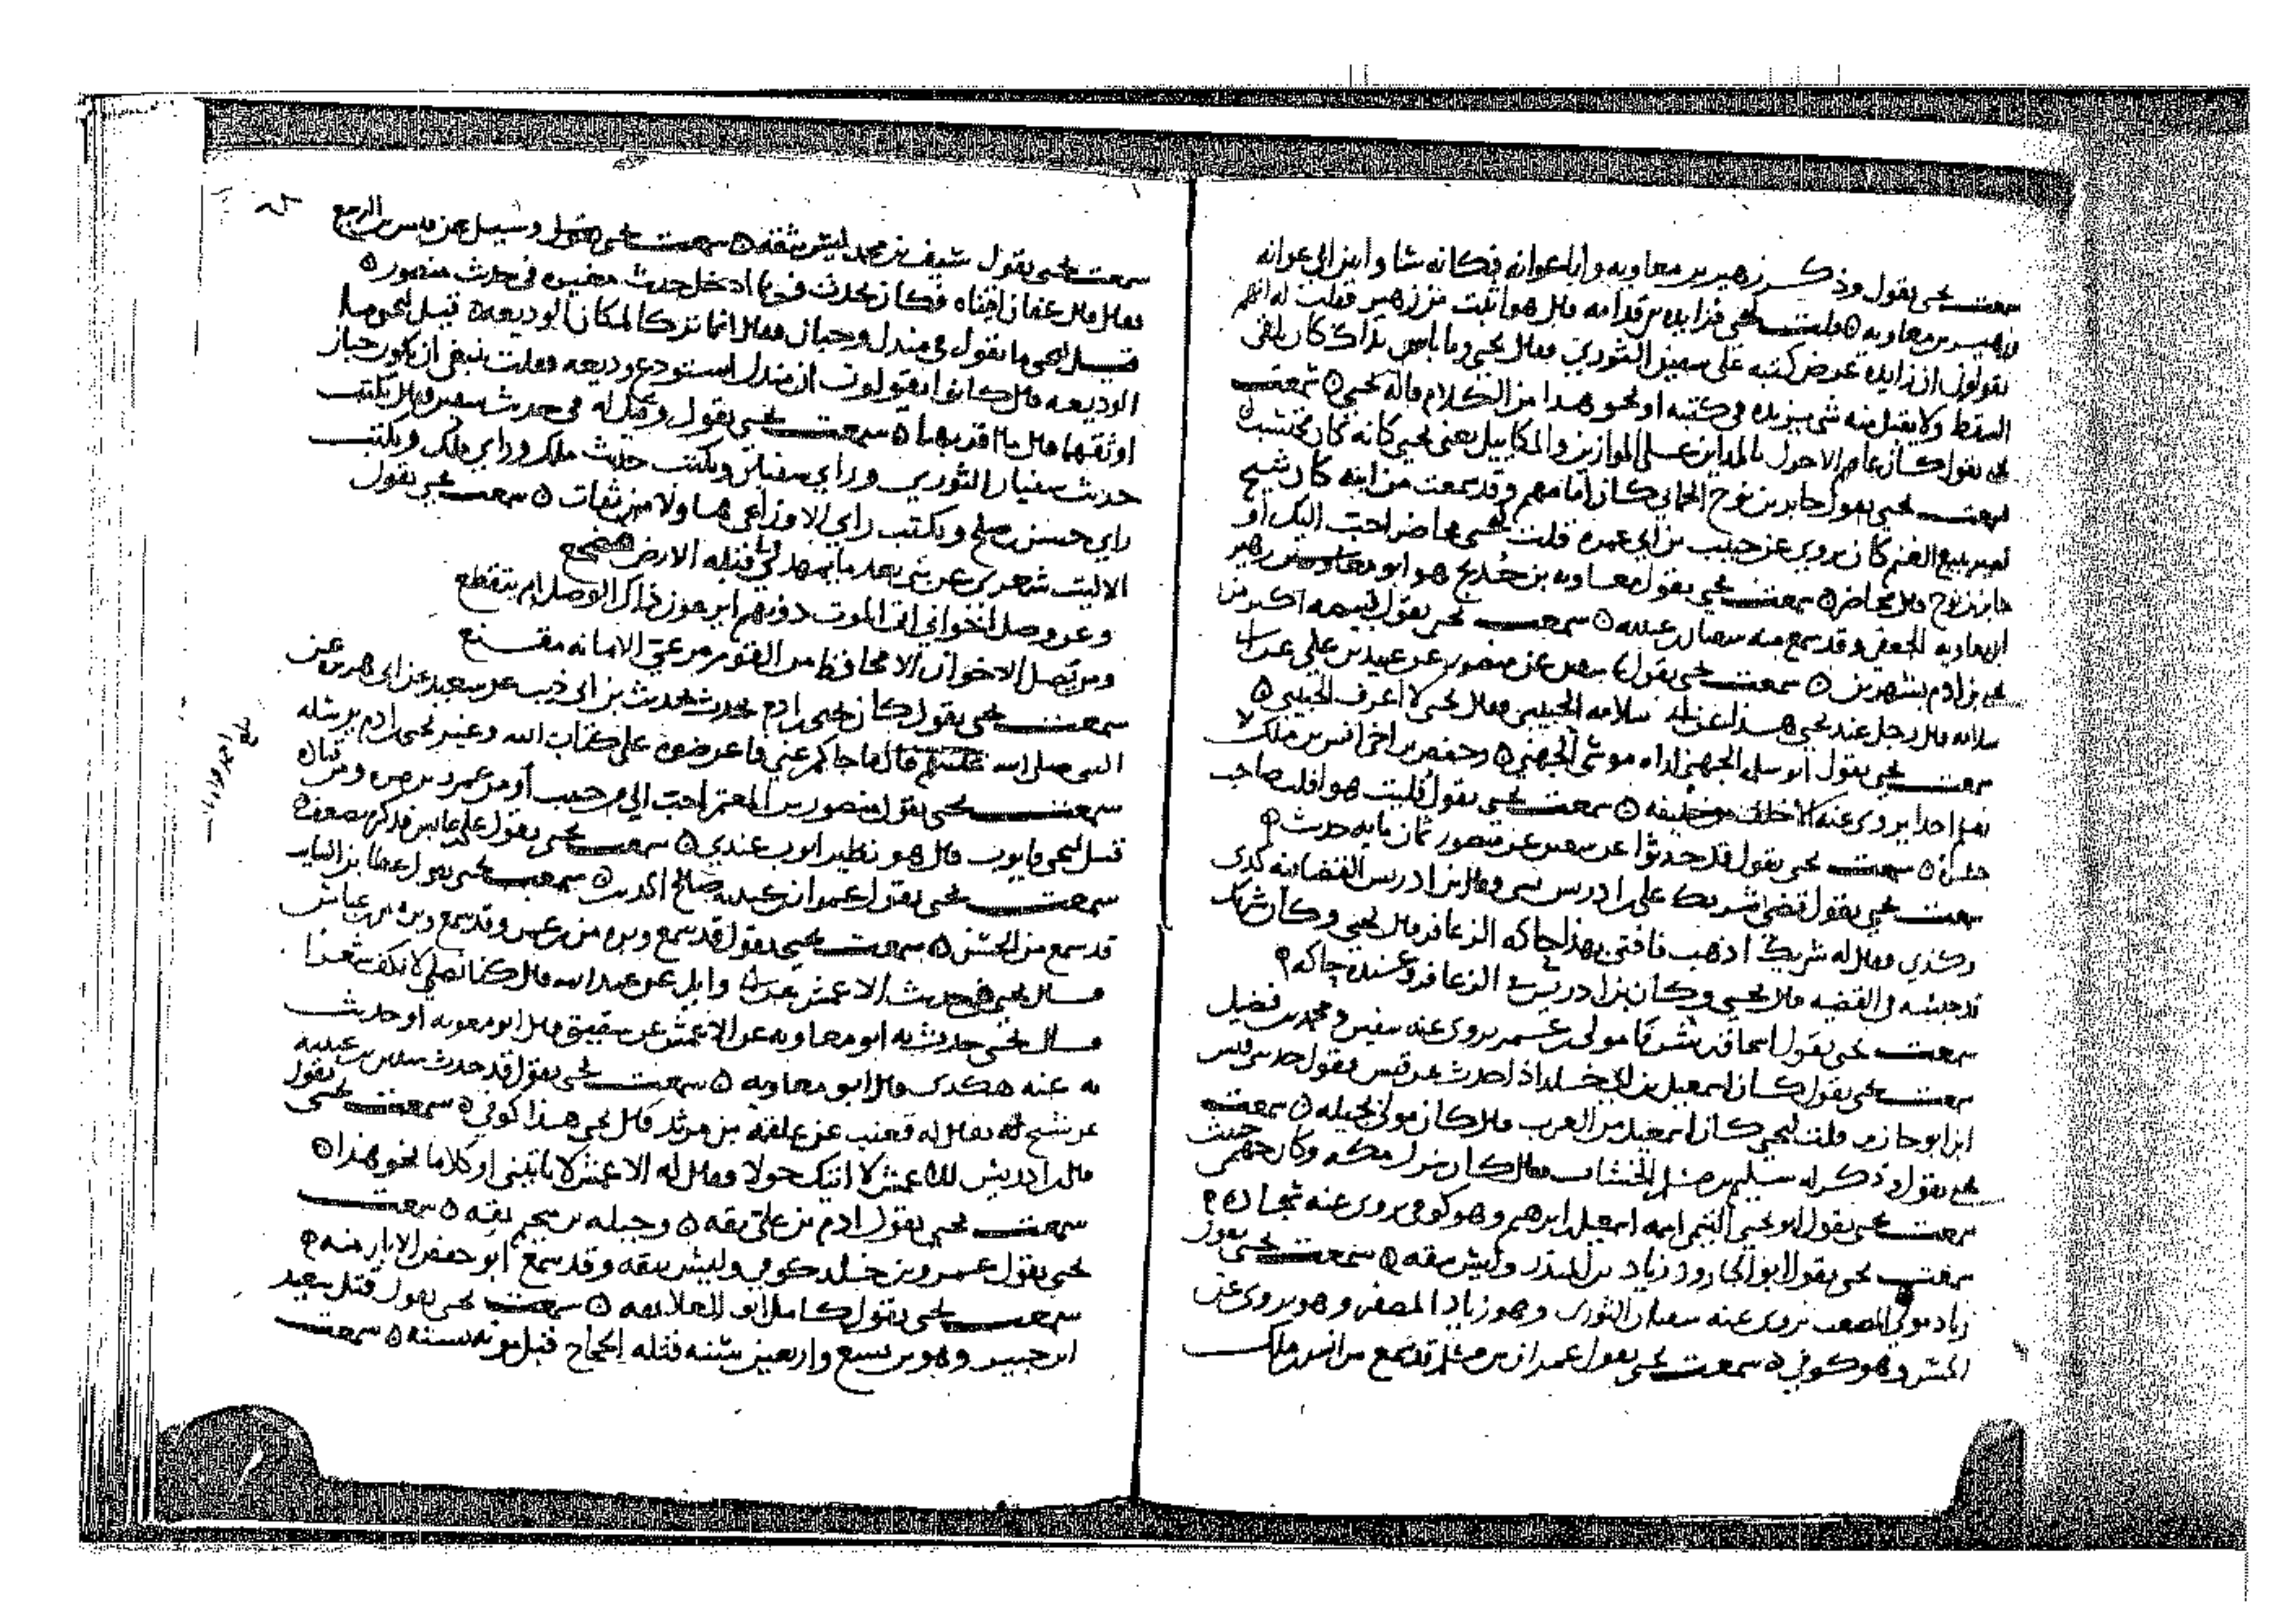 سمعت يحيى يقول وذكر زهير بن معاوية وابا عوانه فكانه سا وا بين ابي عوانه
زهير بن معاويه ٥ قلت ليحيى فزايده بن قدامه قال هو اثبت من زهير فقلت له انهم
يقولون ان زايده عرض كتبه على سفين الثوري فقال يحيى وما باس بذاك كان يلقي
السقط ولا يقبل منه شي يزيده في كتبه او نحو هذا من الكلام قاله يحيى ٥ سمعت
يحيى يقول كان عاصم الاحول بالمداين على الموازين والمكاييل يعني يحيى كانه كان محتسبا
سمعت يحيى يقول جابر بن نوح الحماني كان امامهم وقد سمعت من ابنه كان شيخ
يبيع الغنم كان يروي عن حبيب بن ابي عمره قلت ليحيى محاضر احب اليك او
جابر بن نوح قال محاضر ٥ سمعت يحيى يقول معاويه بن حديج هو ابو زهير
ابن معاويه الجعفي وقد سمع منه سفيان بن عيينه ٥ سمعت يحيى يقول قبيصه اكبر من
يحيى بن ادم بشهرين ٥ سمعت يحيى يقول سفين عن منصور عن عبيد بن علي عن
سلامه قال رجل عند يحيى هذا سلامه الحبيبي فقال يحيى لا اعرف الحبيبي ٥
سمعت يحيى يقول ابو سلمه الجهني اراه موسى الجهني ٥ وحفص بن اخي انس بن ملك لا
نعلم احدا يروي عنه الا خلف بن خليفه ٥ سمعت يحيى يقول فليت هو افلت صاحب
جسره ٥ سمعت يحيى يقول قد حدثوا عن سفين عن منصور ثمان مايه حديث
سمعت يحيى يقول قضى شريك على بن ادريس بشي وقال بن ادريس القضا فيه كذى
وكذي فقال له شريك اذهب فافتي بهذا حاكه الزعافر قال يحيى وكان شريك
قد حبسه في القضيه قال يحيى وكان بن ادريس الزعافر وعندنا حاكه
سمعت يحيى يقول اسحاق بن شرقا مولى بن عمر يروي عنه سفين ومحمد بن فضيل
سمعت يحيى يقول كان اسمعيل بن ابي خلد اذا حدث عن قيس يقول حدثني قيس
ابن ابو حازم قلت ليحيى كان اسمعيل من العرب قال كان مولى بجيله ٥ سمعت
يحيى يقول وذكر له سليم بن الخشاب فقال كان ينزل مكه وكان جهمي خبيث
سمعت يحيى يقول ابو يحيى التيمي اسمه اسمعيل بن ابرهيم وهو كوفي يروي عنه
سمعت يحيى يقول ابو الجارود زياد بن المنذر وليس بثقه ٥ سمعت يحيى يقول
زياد مولى مصعب يروي عنه سفيان الثوري وهو زياد المصفر وهو يروي عن
الحسن وهو كوفي ٥ سمعت يحيى يقول عمران بن مسلم قد سمع من انس بن ملك
سمعت يحيى يقول سيف بن محمد ليس بثقه ٥ سمعت يحيى يقول وسيل عن قيس بن الربيع
فقال قال عفان اتيناه فكان يحدث فربما ادخل حديث مغيره في حديث منصور ٥
قيل ليحيى ما تقول في مندل وحبان فقال انما تركا لمكان الوديعه ٥ قيل ليحيى وما
الوديعه قال كانوا يقولون ان مندل استودع وديعه فقلت ينبغي ان يكون حبان
اوثقهما قال ما اقربهما ٥ سمعت يحيى يقول وقيل له في حديث سفين قال تكتب
حديث سفيان الثوري وراي سفين وتكتب حديث ملك وراي ملك وتكتب
راي حسن بن صلح وتكتب راي الاوزاعي هاولا من ثقات ٥ سمعت يحيى يقول
الا ليت شعري عن بعد ما يمهد لي قتله الارض مضجع
وعن وصل اخواني اتى الموت دونهم ابن عون ذاك الوصل ام يتقطع
ومن يصل الاخوان الا محافظ من القوم مرعي الامانه مقنع
سمعت يحيى يقول كان يحيى بن ادم يحدث بحديث بن ابي ذيب عن سعيد عن ابي هريره عن
النبي صلى الله عليه وسلم قال ما جاكم عني فاعرضوه على كتاب الله وغير يحيى بن ادم يرسله
سمعت يحيى يقول منصور بن المعتمر احب الي من حبيب او من عمرو بن مره ومن قتاده
قيل ليحيى فايوب قال هو نظير ايوب عندي ٥ سمعت يحيى يقول علي بن عابس فذكره بضعف ٥
سمعت يحيى يقول عمران بن عيينه صالح الحديث ٥ سمعت يحيى يقول عطا بن السايب
قد سمع من الحسن ٥ سمعت يحيى يقول قد سمع وبره من بن عمر وقد سمع وبره من بن عباس
قال يحيى في حديث الاعمش عن ابي وايل عن عبد الله قال كنا نصلي لا نكف شعرا
قال يحيى حدث به ابو معاويه عن الاعمش عن شقيق قال ابو معويه او حدث
به عنه هكذى قال ابو معاويه ٥ سمعت يحيى يقول قد حدث سفين بن عيينه
عن شيخ يقال له قعنب عن علقمه بن مرثد قال يحيى هذا كوفي ٥ سمعت يحيى يقول
قال بن ادريس للاعمش لا اتيك حولا وقال له الاعمش لا تاتيني او كلاما نحو هذا ٥
سمعت يحيى يقول ادم بن علي ثقه ٥ وجبله بن سحيم ثقه ٥ سمعت
يحيى يقول عمرو بن خلد كوفي وليس بثقه وقد سمع ابو حفص الابار منه
سمعت يحيى يقول كامل ابو العلا ثقه ٥ سمعت يحيى يقول قتل سعيد
ابن جبير وهو بن تسع واربعين سنه قتله الحجاج قبل موته بسنه ٥ سمعت